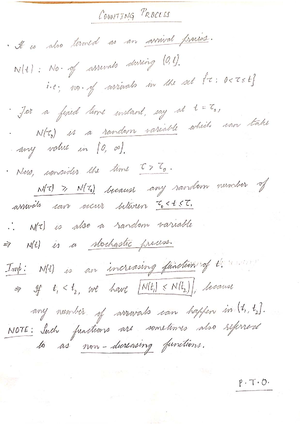 COUNTING PROCESS
· It is also termed as an arrival process.
N(t) : No. of arrivals during (0,t],
i.e; no. of arrivals in the set {τ : 0<τ≤t}
· For a fixed time instant, say at t = τ₀,
· N(τ₀) is a random variable which can take
any value in [0, ∞].
· Now, consider the time τ > τ₀.
N(τ) ≥ N(τ₀) because any random number of
arrivals can occur between τ₀ < t ≤ τ.
∴ N(τ) is also a random variable
⇒ N(t) is a stochastic process.
Imp: N(t) is an increasing function of t.
⇒ If t₁ < t₂, we have N(t₁) ≤ N(t₂), because
any number of arrivals can happen in (t₁, t₂].
NOTE: Such functions are sometimes also referred
to as non-decreasing functions.
P.T.O.